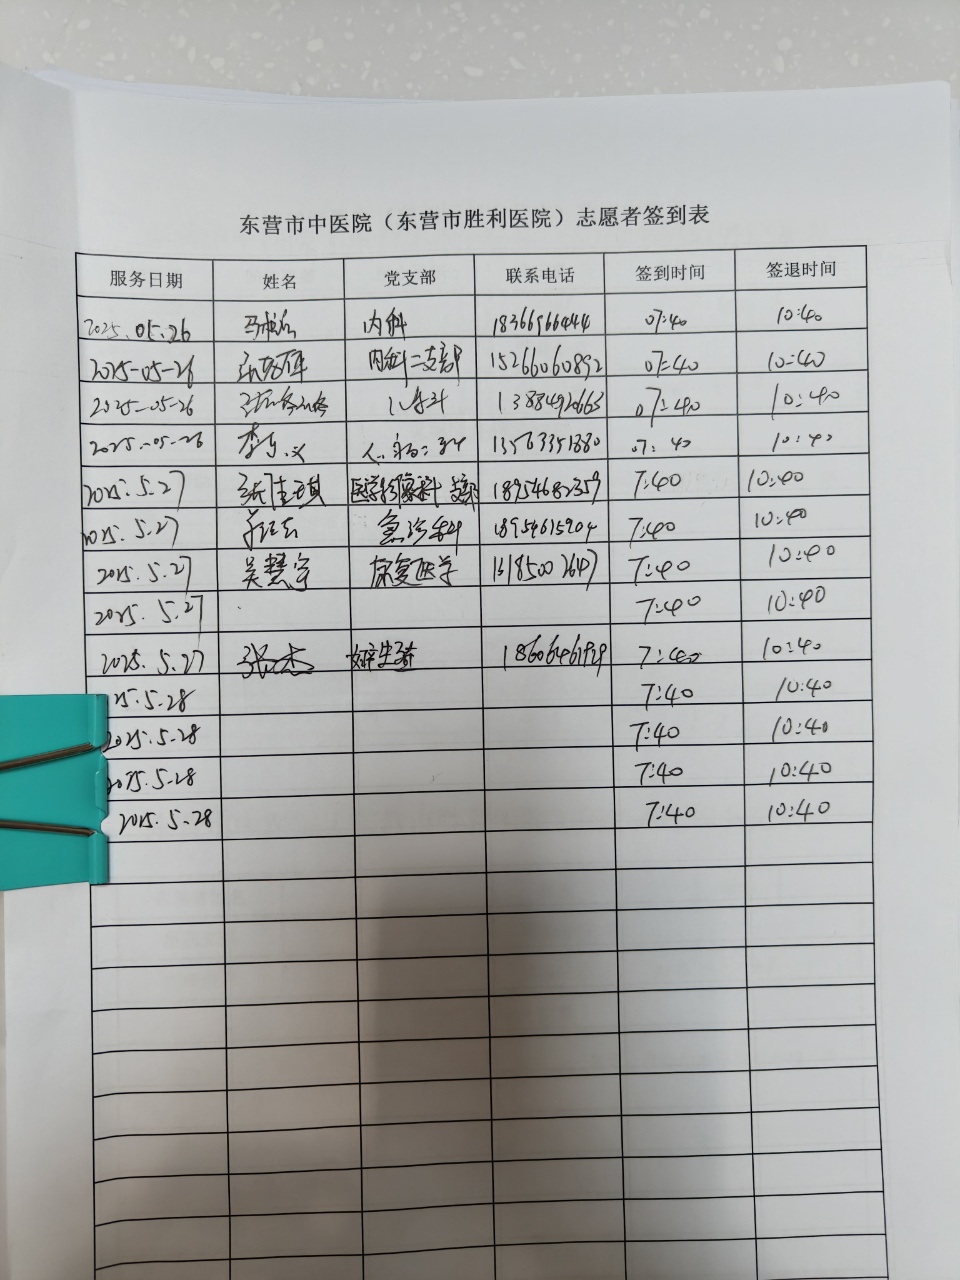 东营市中医院（东营市胜利医院）志愿者签到表
服务日期 姓名 党支部 联系电话 签到时间 签退时间
2025.05.26 内科 18366966444 07:40 10:40
2025-05-26 内科二支部 15266060892 07:40 10:40
2025-05-26 儿外科 13884926663 07:40 10:40
2025-05-26 13563351880 07:40 10:40
2025.5.27 张佳琪 医学影像科支部 18954682359 7:40 10:40
2025.5.27 急诊科 18954615904 7:40 10:40
2025.5.27 吴慧宇 康复医学 7:40 10:40
2025.5.27 7:40 10:40
2025.5.27 张杰 7:40 10:40
25.5.28 7:40 10:40
2025.5.28 7:40 10:40
2025.5.28 7:40 10:40
2025.5.28 7:40 10:40